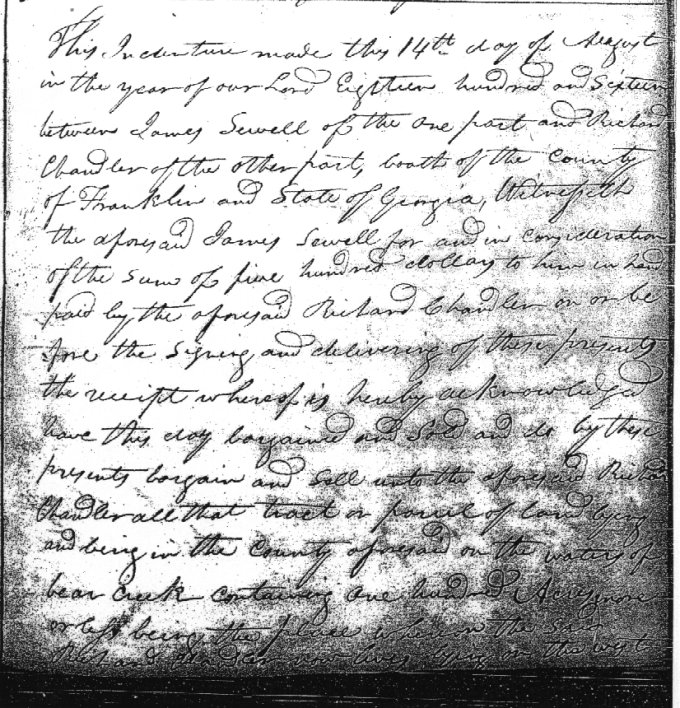 This Indenture made this 14th day of August
in the year of our Lord Eighteen hundred and Sixteen
between James Sewell of the one part and Richard
Chandler of the other part, booth of the County
of Franklin and State of Georgia, Witnesseth
the aforesaid James Sewell for and in consideration
of the sum of five hundred dollars to him in hand
paid by the aforesaid Richard Chandler on or be
fore the signing and delivering of these presents
the receipt whereof is hereby acknowledged
have this day bargained and sold and do by these
presents bargain and sell unto the aforesaid Richard
Chandler all that tract or parcel of land lying
and being in the County aforesaid on the waters of
bear Creek containing one hundred Acres more
or less being the place whereon the said
Richard Chandler now lives lying on the west